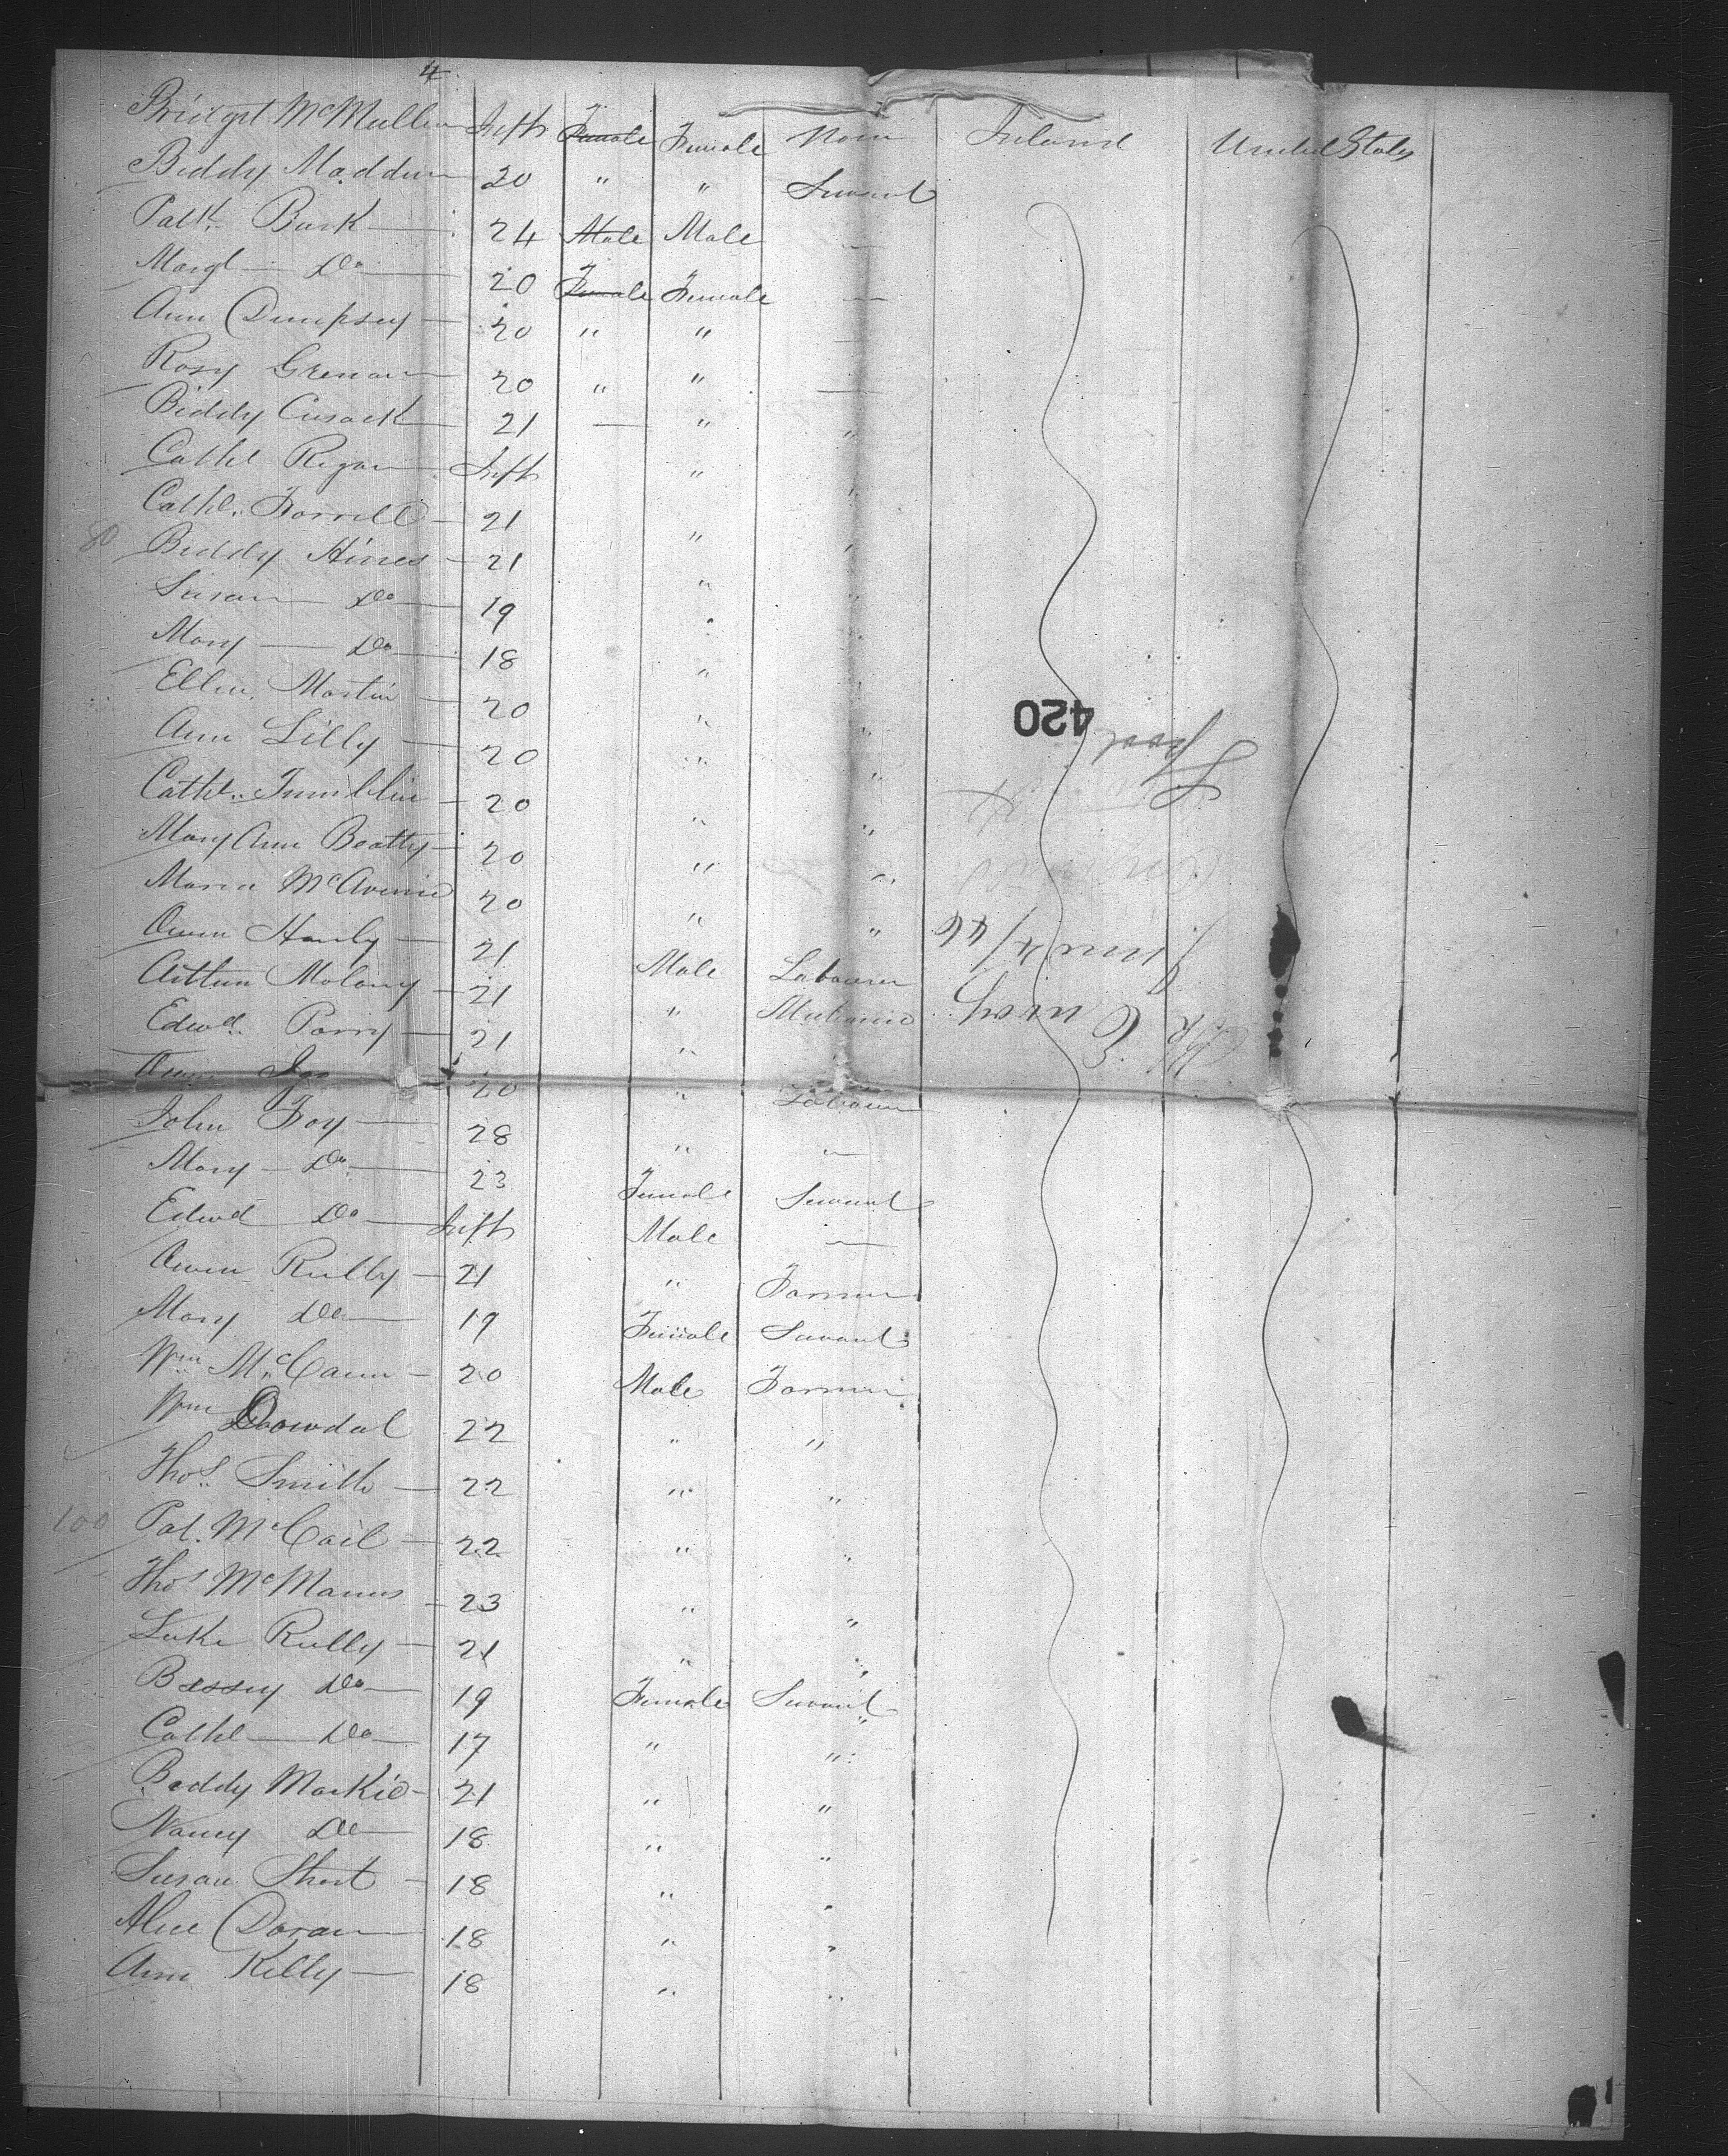 4
Bridget McMullen Inft Female Female None Ireland United States
Biddy Madden 20 " " Servant
Patk. Burk 24 Male Male —
Margt Do 20 Female Female —
Ann Dempsey 20 " " —
Rosy Grenan 20 " " —
Biddy Cusack 21 — " "
Cathe Regan Inft " "
Cathe. Farrell 21 " "
80 Biddy Hines 21 " "
Susan Do 19 " "
Mary Do 18 "
Ellen Martin 20 " "
Ann Lilly 20 " "
Cathe. Tumblin 20 " "
Mary Ann Beatty 20 " "
Maria McAvenie 20 " "
Owen Hanly 21 Male Labourer
Arthur Molony 21 " Mechanic
Edwd. Parry 21 "
Owen Igo 20 " Labourer
John Foy 28 " "
Mary Do 23 Female Servant
Edwd Do Inft Male —
Owen Reilly 21 " Farmer
Mary Do 19 Female Servant
Wm McCann 20 Male Farmer
Wm Dowdal 22 " "
Thos. Smith 22 " "
100 Pat. McCail 22 " "
Thos McManus 23 " "
Luke Reilly 21 " "
Bessey Do 19 Female Servant
Cathe Do 17 " "
Biddy Mackie 21 " "
Nancy Do 18 " "
Susan Short 18 " "
Alice Doran 18 " "
Ann Kelly 18 " "
420
Lpool
June 4/46